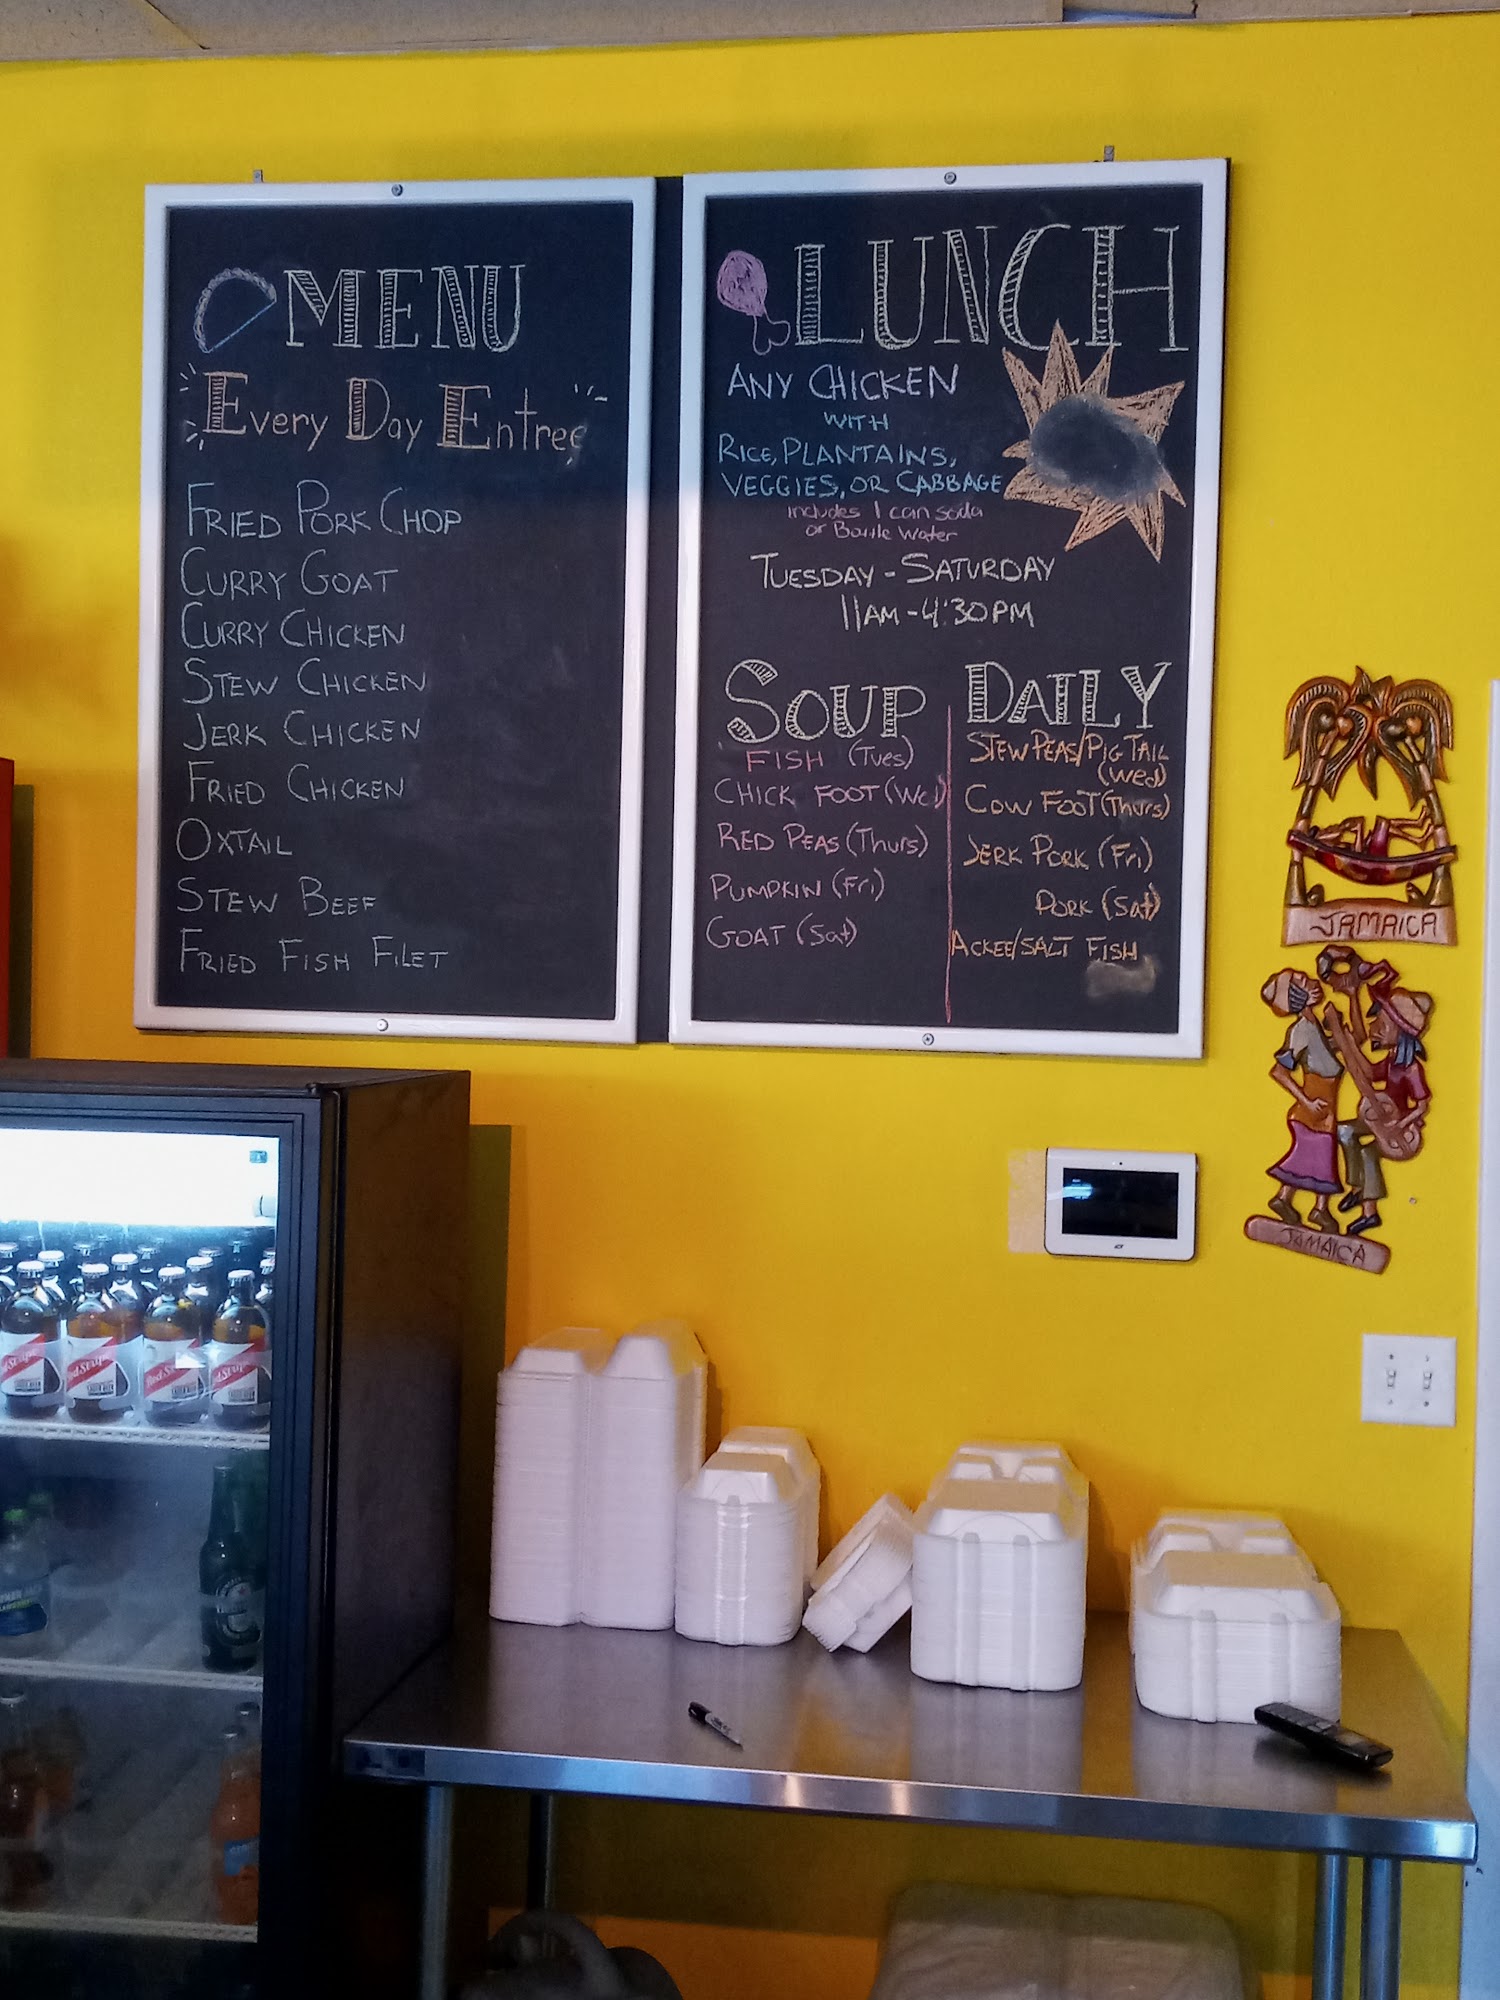 MENU
Every Day Entree
FRIED PORK CHOP
CURRY GOAT
CURRY CHICKEN
STEW CHICKEN
JERK CHICKEN
FRIED CHICKEN
OXTAIL
STEW BEEF
FRIED FISH FILET
LUNCH
ANY CHICKEN
WITH
RICE, PLANTAINS,
VEGGIES, OR CABBAGE
includes 1 can soda
or Bottle Water
TUESDAY - SATURDAY
11AM - 4:30PM
SOUP
FISH (Tues)
CHICK FOOT (Wed)
RED PEAS (Thurs)
PUMPKIN (Fri)
GOAT (Sat)
DAILY
STEW PEAS/PIG TAIL
(Wed)
COW FOOT (Thurs)
JERK PORK (Fri)
PORK (Sat)
ACKEE/SALT FISH
JAMAICA
JAMAICA
Red Stripe
Red Stripe
Red Stripe
Red Stripe